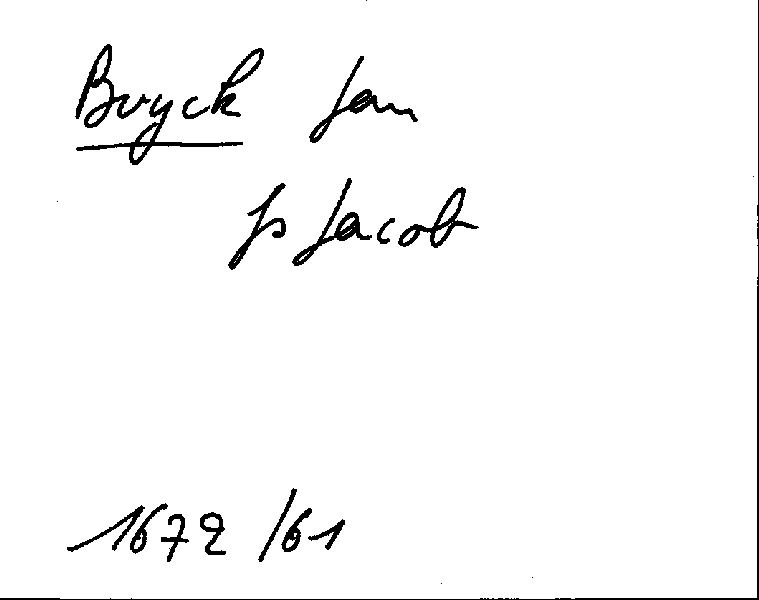 Buyck Jan
fs Jacob
1672 /61